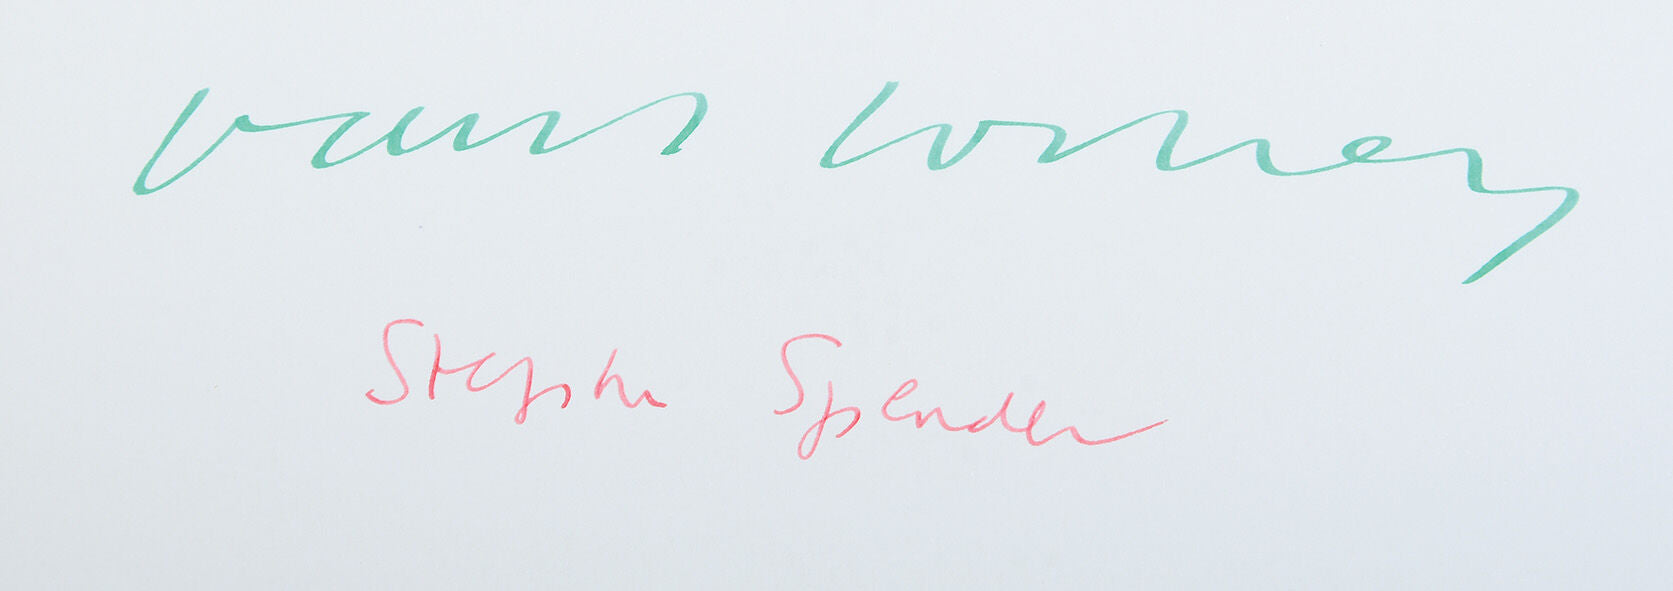 David Hockney
Stephen Spender